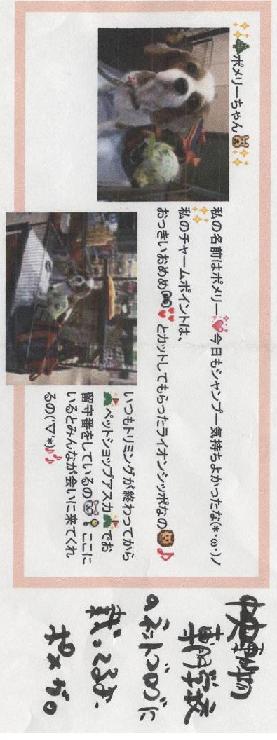 ポメリーちゃん
私の名前はポメリー💗今日もシャンプー気持ちよかったな(*･ω･)ノ
私のチャームポイントは、
おっきいおめめ💕とカットしてもらったライオンシッポなの🦁♪
いつもトリミングが終わってから
ペットショップアスカでお
留守番をしているの🐻ここに
いるとみんなが会いに来てくれ
るの(*'∇'*)♪♪
中央動物
専門学校
のネットブログに